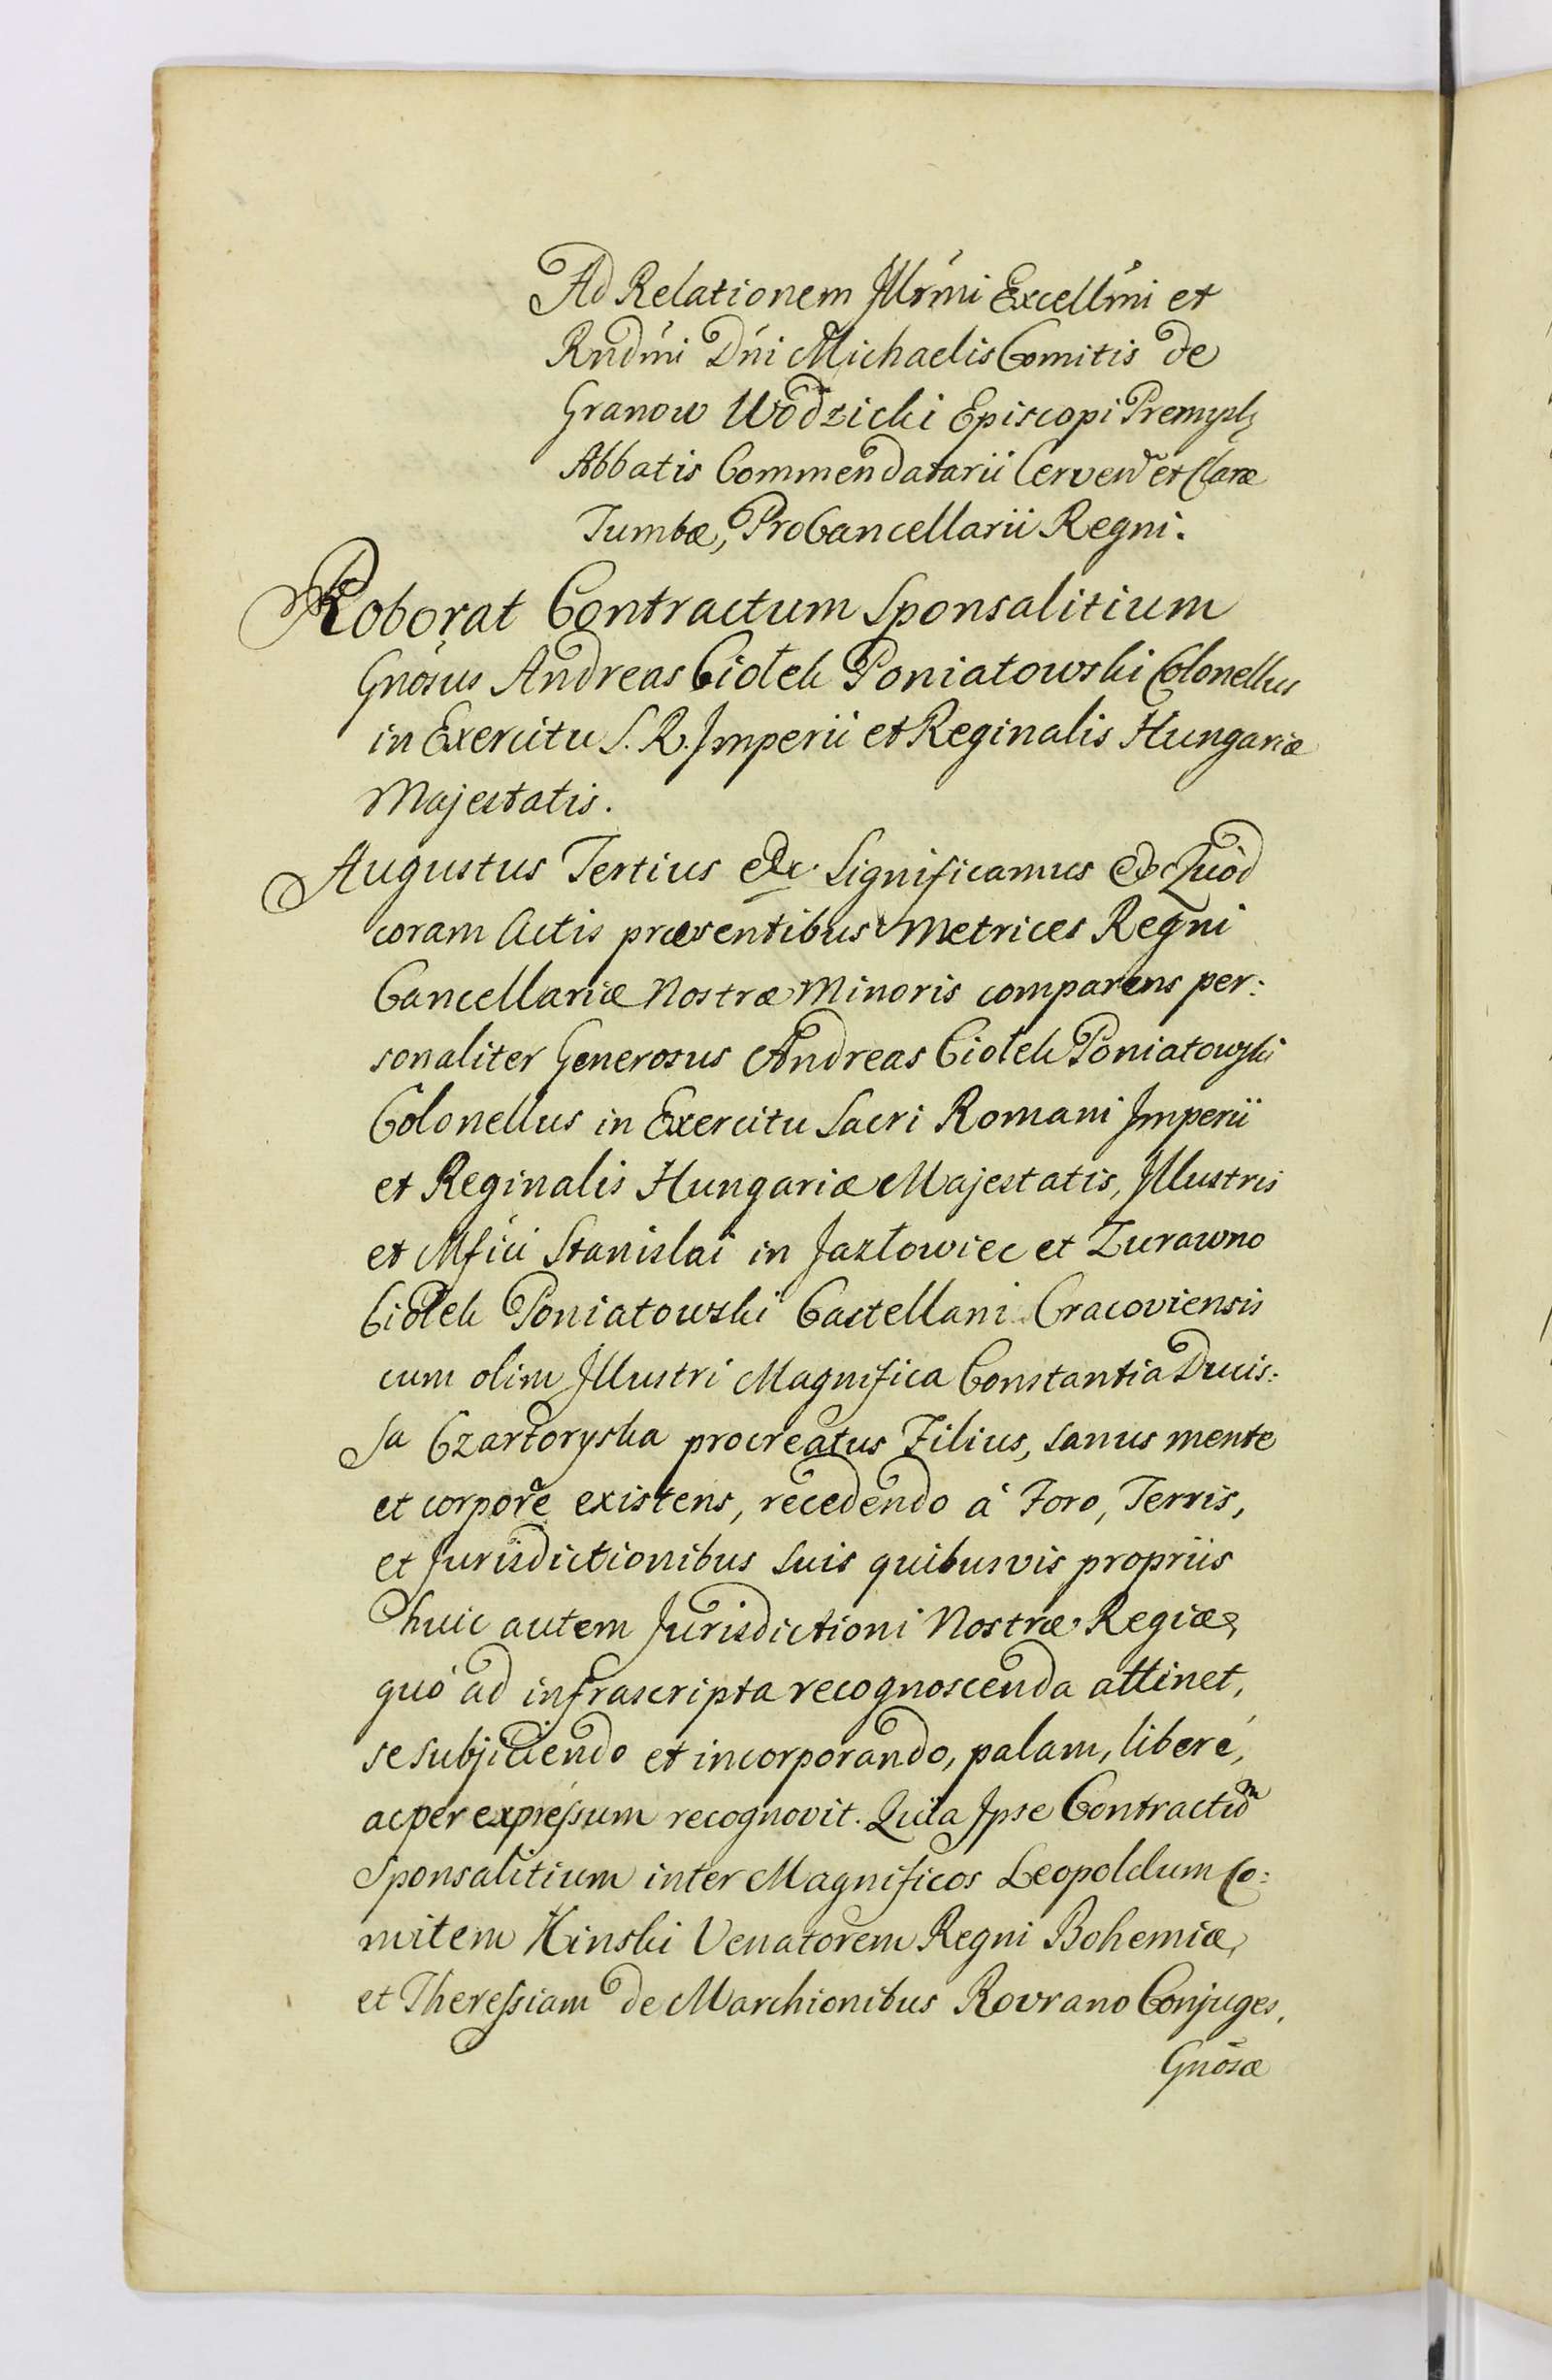 Ad Relationem Jllr̃mi Excelľmi et
Rndm̃i Dn̄i Michaelis Comitis de
Granow Wodzicki Episcopi Premysl:
Abbatis Commendatarii Cerven̄ et Claræ
Tumbæ, ProCancellarii Regni.
Roborat Contractum Sponsalitium
Gnõsus Andreas Ciołek Poniatowski Colonellus
in Exercitu S. R. Jmperii et Reginalis Hungariæ
Majestatis.
Augustus Tertius &c. Significamus &c Quòd
coram Actis præsentibus Metrices Regni
Cancellariæ Nostræ Minoris comparens per:
sonaliter Generosus Andreas Ciołek Poniatowski
Colonellus in Exercitu Sacri Romani Jmperii
et Reginalis Hungariæ Majestatis, Jllustris
et Mfići Stanislai in Jazłowiec et Zurawno
Ciołek Poniatowski Castellani Cracoviensis
cum olim Jllustri Magnifica Constantia Ducis:
sa Czartoryska procreatus Filius, sanus mente
et corpore existens, recedendo à Foro, Terris,
et Jurisdictionibus suis quibusvis propriis
huic autem Jurisdictioni Nostræ Regiæ,
quó ad infrascripta recognoscenda attinet,
se subjiciendo et incorporando, palam, liberé,
ac per expressum recognovit. Quia Jpse Contractũm
Sponsalitium inter Magnificos Leopoldum Co:
mitem Kinski Venatorem Regni Bohemiæ,
et Theressiam de Marchionibus Rovrano Conjuges,
Gnõsæ